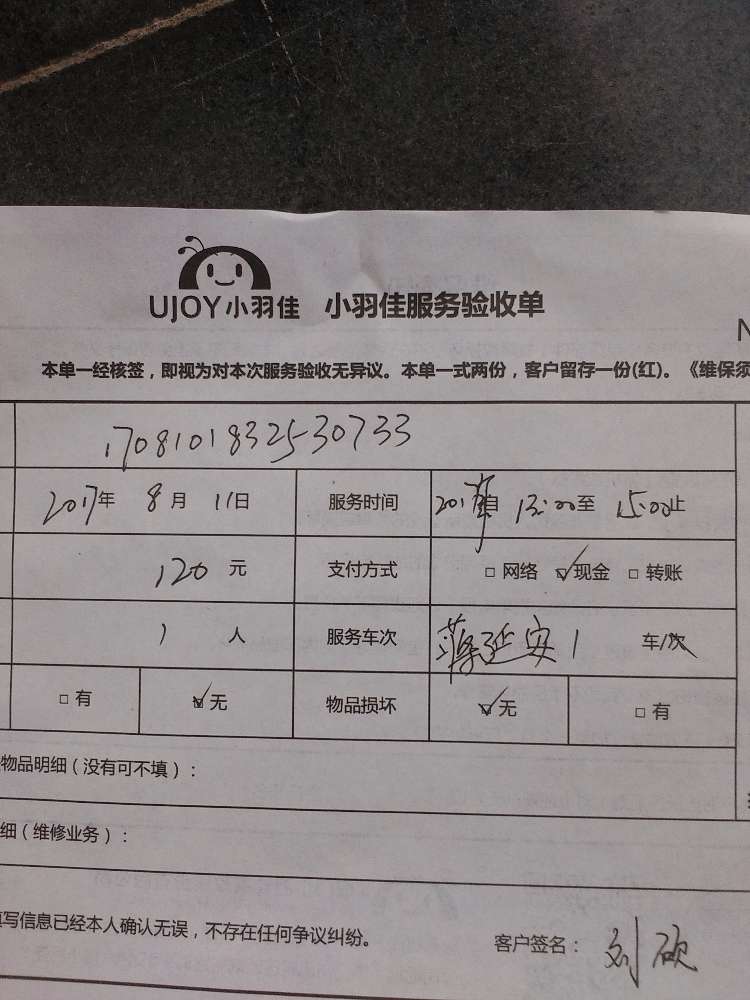 UJOY小羽佳 小羽佳服务验收单
N
本单一经核签，即视为对本次服务验收无异议。本单一式两份，客户留存一份(红)。《维保须
170810183253 0733
2017年 8月 11日 服务时间 201 自 13:00至 15:00止
120 元 支付方式 □ 网络 ☑ 现金 □ 转账
1 人 服务车次 延安 1 车/次
□ 有 ☑ 无 物品损坏 ☑ 无 □ 有
物品明细（没有可不填）：
细（维修业务）：
填写信息已经本人确认无误，不存在任何争议纠纷。 客户签名： 刘硕